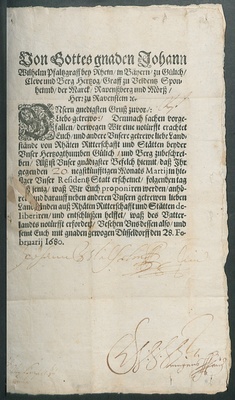 Von Gottes gnaden Johann
Wilhelm Pfaltzgraff bey Rhein / in Bäyern / zu Gülich /
Cleve und Berg Hertzog / Graff zu Veldentz Spon-
heimb / der Marck / Ravensberg und Mörß /
Herr zu Ravenstein ꝛc.
Unsern gnedigsten Gruß zuvor /
Liebe getrewe: / Demnach sachen vorge-
fallen / derwegen Wir eine notürfft erachtet
Euch / und andere Unsere getrewe liebe Land-
stände von Rhäten Ritterschafft und Stätten beyder
Unser Hertzogthumben Gülich / und Berg zubeschrei-
ben / Alß ist Unser gnädigster Befelch hiemit daß Ihr
gegenden 20. negstkünfftigen Monats Martij in hie-
siger Unser Residentz Statt erscheinet / folgenden tag
waß Wir Euch proponiren werden / anhö-
ret / und darauff neben anderen Unsern getrewen lieben
Landständen auß Rhäten Ritterschafft und Stätten de-
liberiren / und entschließen helffet / waß deß Vatter-
landts notürfft erfordert / Versehen Uns dessen also / und
seint Euch mit gnaden gewogen Düsseldorff den 28. Fe-
bruarij 1680.